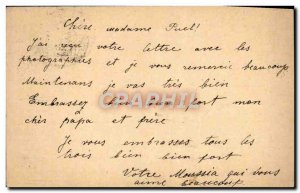 Chère madame Puel!
J'ai reçu votre lettre avec les
photographies et je vous remercie beaucoup
Maintenans je vas très bien
Embrassez bien fort mon
cher papa et frère
Je vous embrasses tous les
trois bien bien fort
Votre Moussia qui vous
aime beaucoup
CPARAMA.COM